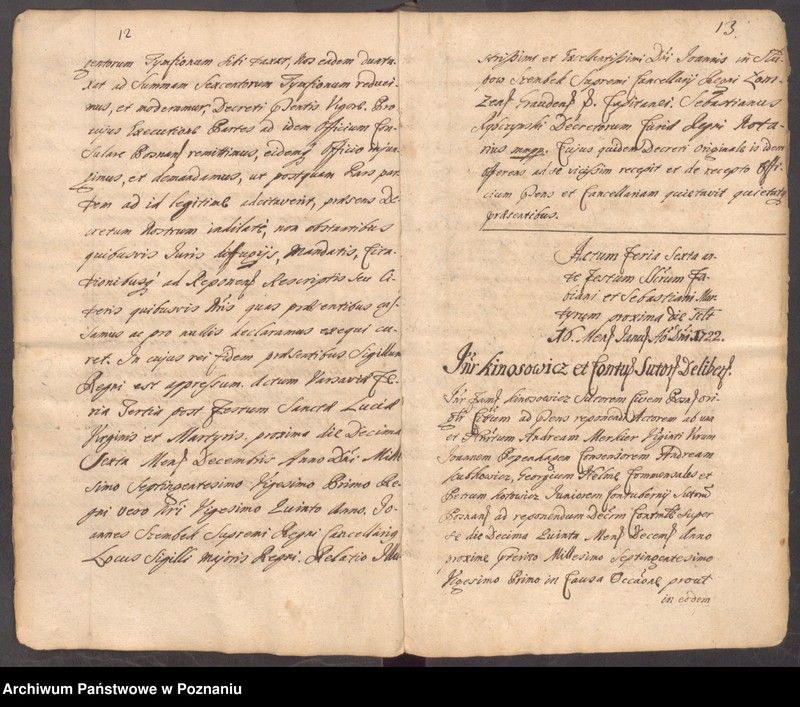 12
gentorum Tymfionum sibi taxat, Nos eadem dunta-
xat ad Summam Sexcentorum Tymfionum reduci-
mus, et moderamur, Decreti pntis Vigore. Pro
cujus Executione Partes ad idem Officium Con-
sulare Posnan remittimus, eidemq Officio injun-
gimus, et demandamus, ut postquam Pars par-
tem ad id legitime adcitaverit, præsens De-
cretum Nostrum indilate, non obstantibus
quibusvis Juris diffugijs, Mandatis, Cita-
tionibusq ad Reponen Rescriptis seu Li-
teris quibusvis Nris quas præsentibus cas-
samus ac pro nullis declaramus exequi cu-
ret. In cujus rei fidem præsentibus Sigillum
Regni est appressum. Actum Varsaviæ Fe-
ria Tertia post Festum Sanctæ Luciæ
Virginis et Martyris proxima die Decima
Sexta Mens Decembris Anno Dni Mille-
simo Septingentesimo Vigesimo Primo Re-
gni vero Nri Vigesimo Quinto Anno. Jo-
annes Szembek Supremus Regni Cancellarius
Locus Sigilli majoris Regni. Relatio Illu-
13.
strissimi et Excellentissimi Dni Joannis in Słu-
pow Szembek Supremi Cancellarij Regni Łom-
zen Graudens Capitanei. Sebastianus
Rybczynski Decretorum Curiæ Regni Nota-
rius mppa. Cujus quidem Decreti originale idem
Offerens ad se vicissim recepit et de recepto Offi-
cium pntis et Cancellariam quietavit quietatq
præsentibus.
Actum Feria Sexta an-
te Festum SSrum Fa-
biani et Sebastiani Mar-
tyrum proxima die scilt
16. Mens Janu Ao Dni 1722.
Inr Kinosowicz et Contub Sutor Deliber.
Inr Fam Kinosowicz Sutorem Civem Posnan ori-
Citum ad pntis reponend Actorem ab una
et Andream Merkier Viginti Virum
Joannem Popenhagen Consensorem Andream
Kubkowicz, Georgium Helme Commensales et
Petrum Kotowicz Juniorem Contubernij Sutorum
Posnan ad reponendum Decrm Super
te die Decima Quinta Mens Decem Anno
proxime Præterito Millesimo Septingentesimo
Vigesimo Primo in Causa Occaone prout
in eodem
Archiwum Państwowe w Poznaniu